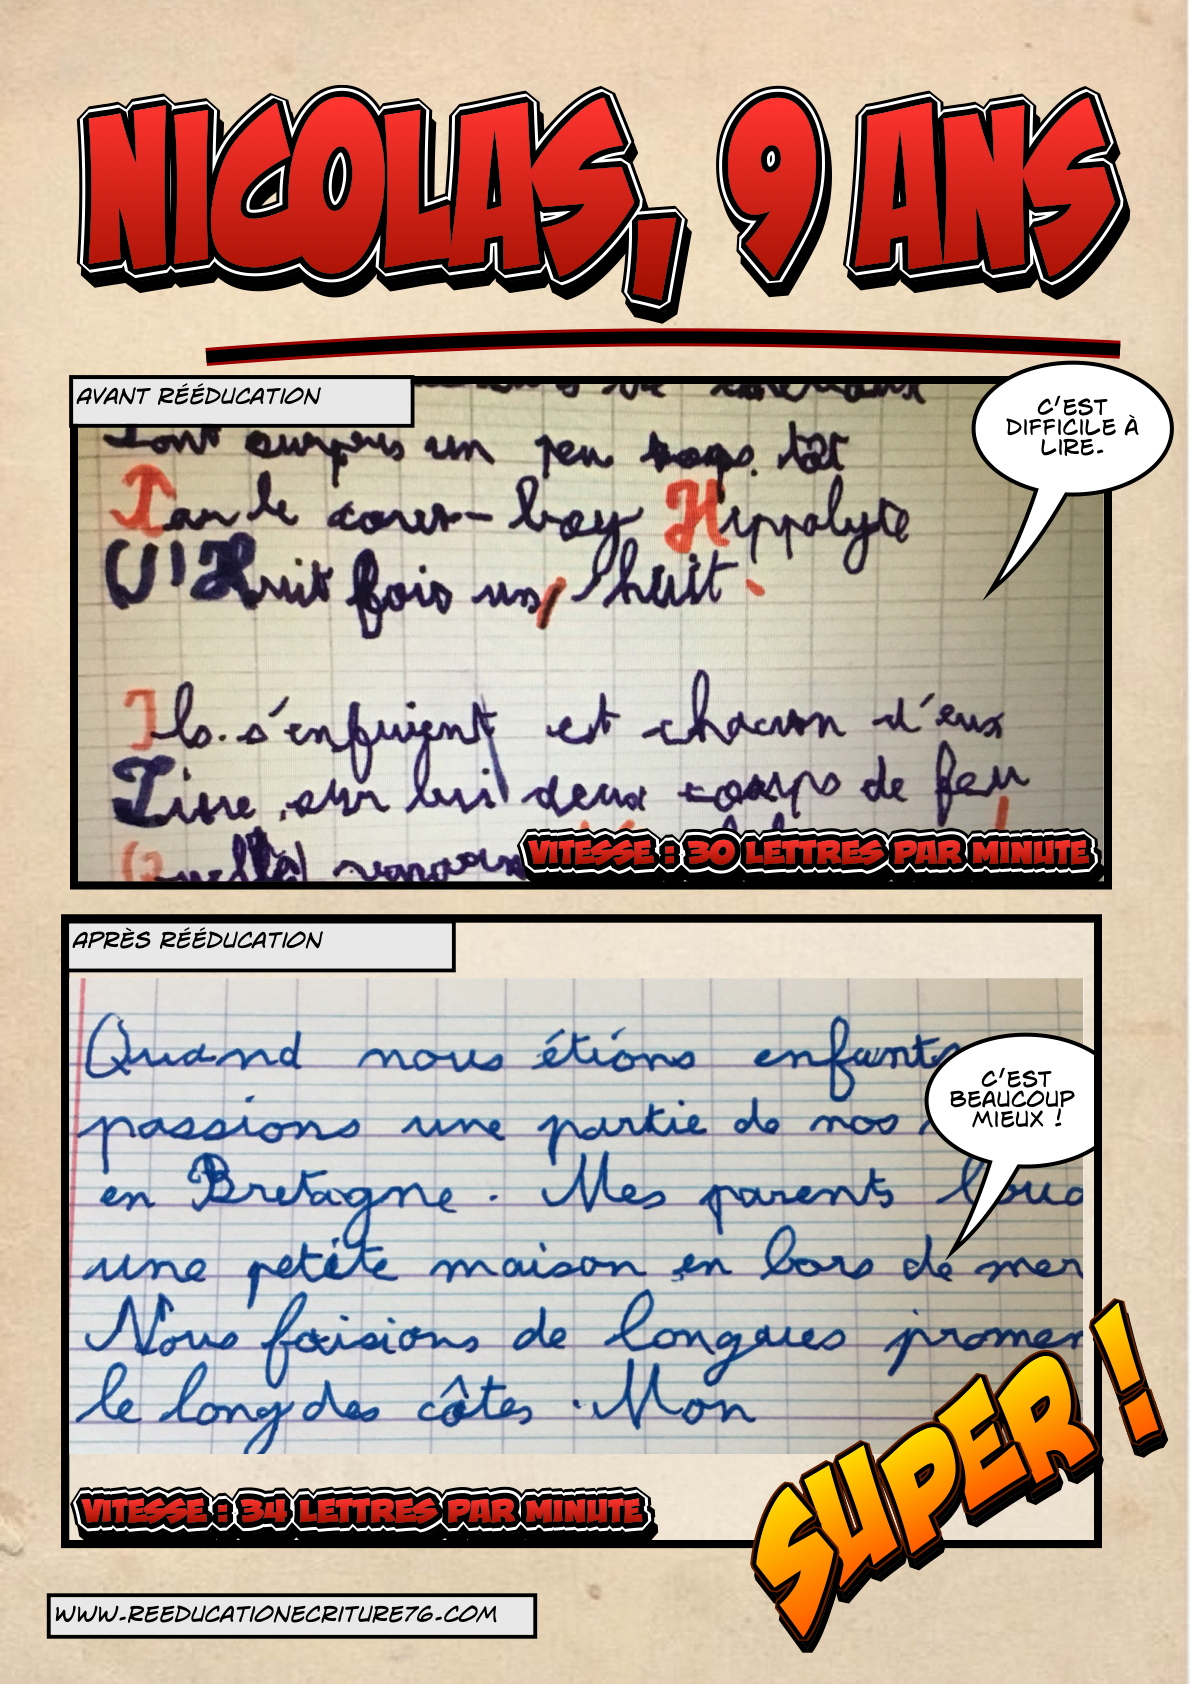 NICOLAS, 9 ANS
AVANT RÉÉDUCATION
C'EST
DIFFICILE À
LIRE.
sont surpris un peu tôt
Ian le cower-boy Hippolyte
U'Huit fois un, huit.
Ils s'enfuient est chacun d'eux
Tire sur lui deux coups de feu
VITESSE : 30 LETTRES PAR MINUTE
APRÈS RÉÉDUCATION
Quand nous étions enfants
passions une partie de nos
en Bretagne. Mes parents loua
une petite maison en bors de mer
Nous faisions de longues promen
le long des côtes. Mon
C'EST
BEAUCOUP
MIEUX !
VITESSE : 34 LETTRES PAR MINUTE
SUPER !
WWW.REEDUCATIONECRITURE76.COM